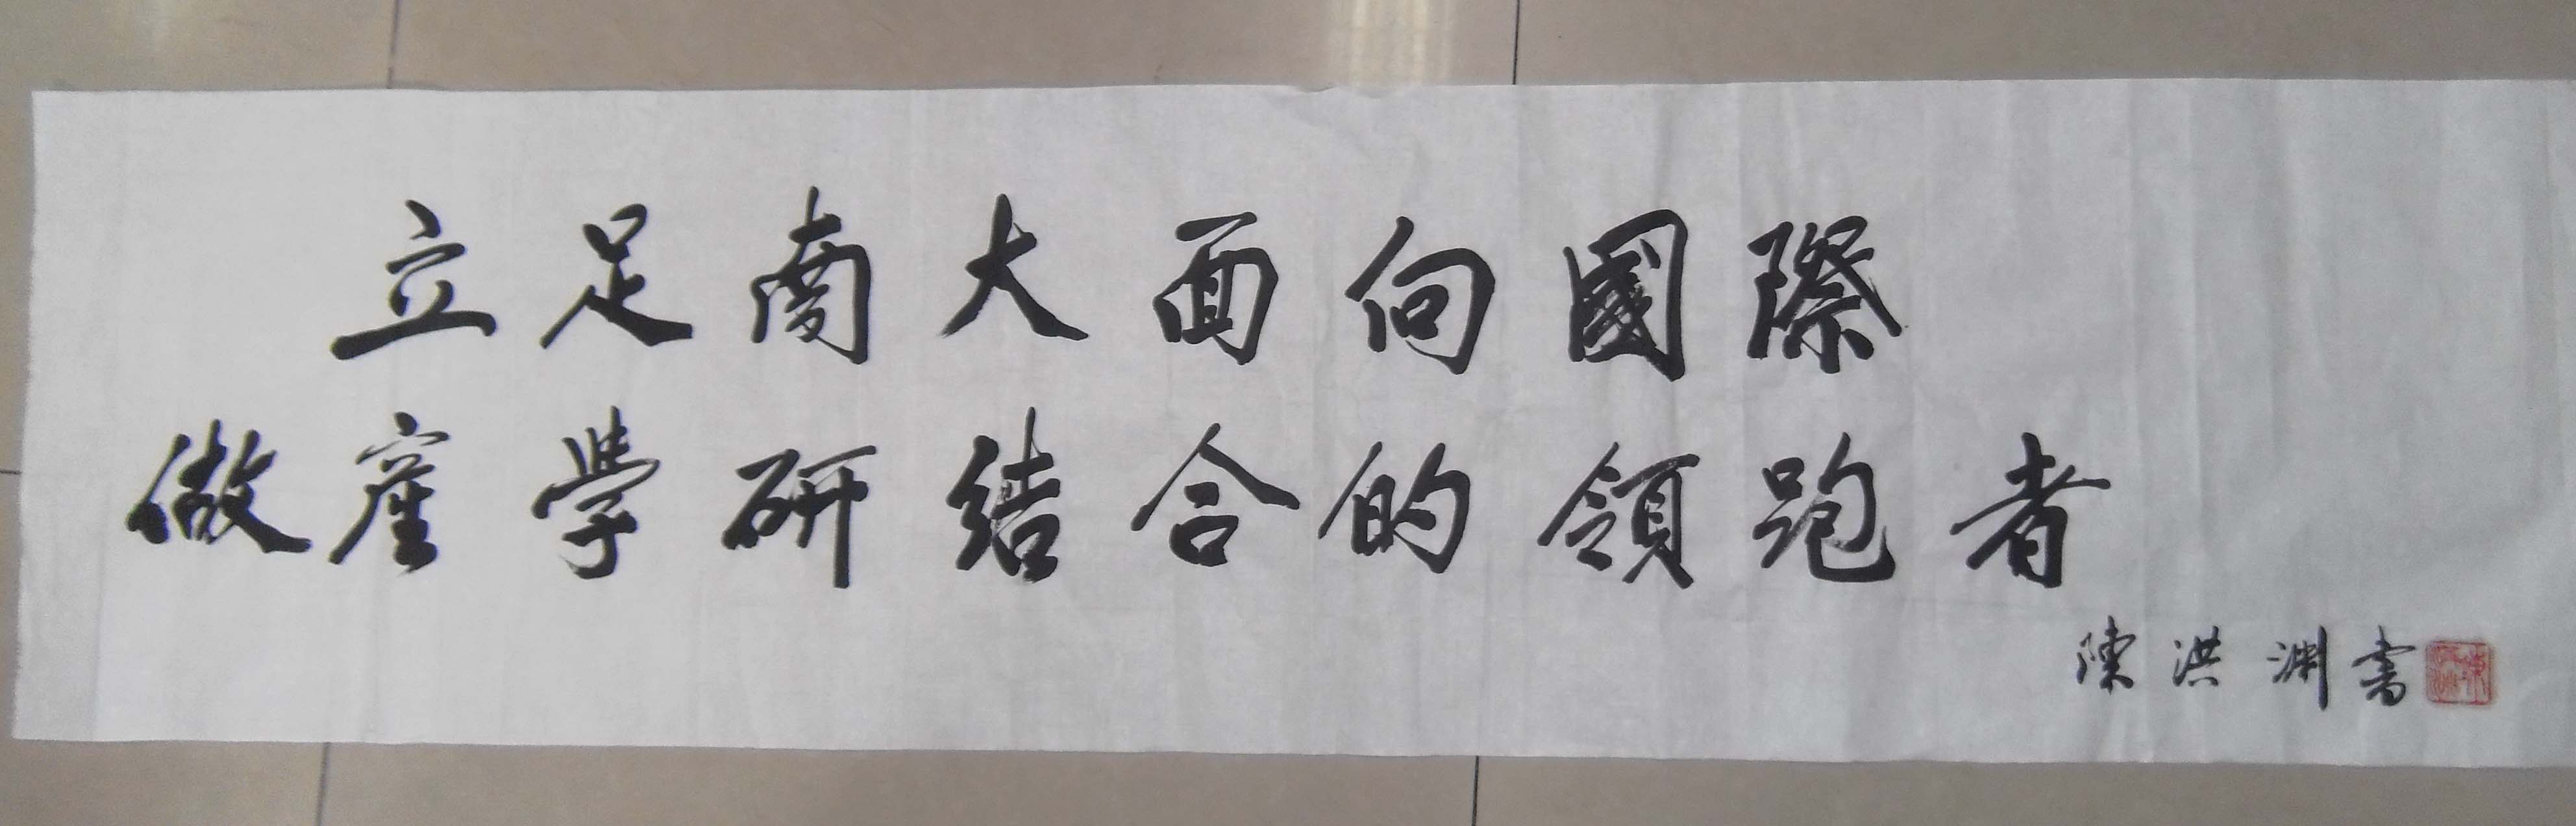 立足南大面向國際
做產學研結合的領跑者
陳洪淵書